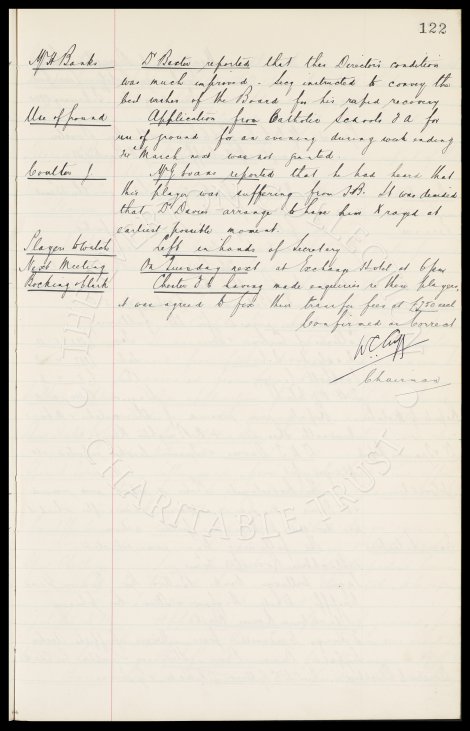 122
Mr H. Banks Dr Baxter reported that this Director's condition
was much improved. Secy instructed to convey the
best wishes of the Board for his rapid recovery
Use of ground Application from Catholic Schools F A for
use of ground for an evening during week ending
March next was not granted.
Coulter J Mr Evans reported that he had heard that
this player was suffering from T.B. It was decided
that Dr Davies arrange to have him X rayed at
earliest possible moment.
Players to watch Left in hands of Secretary
Next Meeting On Tuesday next at Exchange Hotel at 6 pm
Chester F C having made enquiries re these players,
it was agreed to fix their transfer fees at £750 each
Confirmed as Correct
W.C. Cuff
Chairman
THE COLLECTION
CHARITABLE TRUST